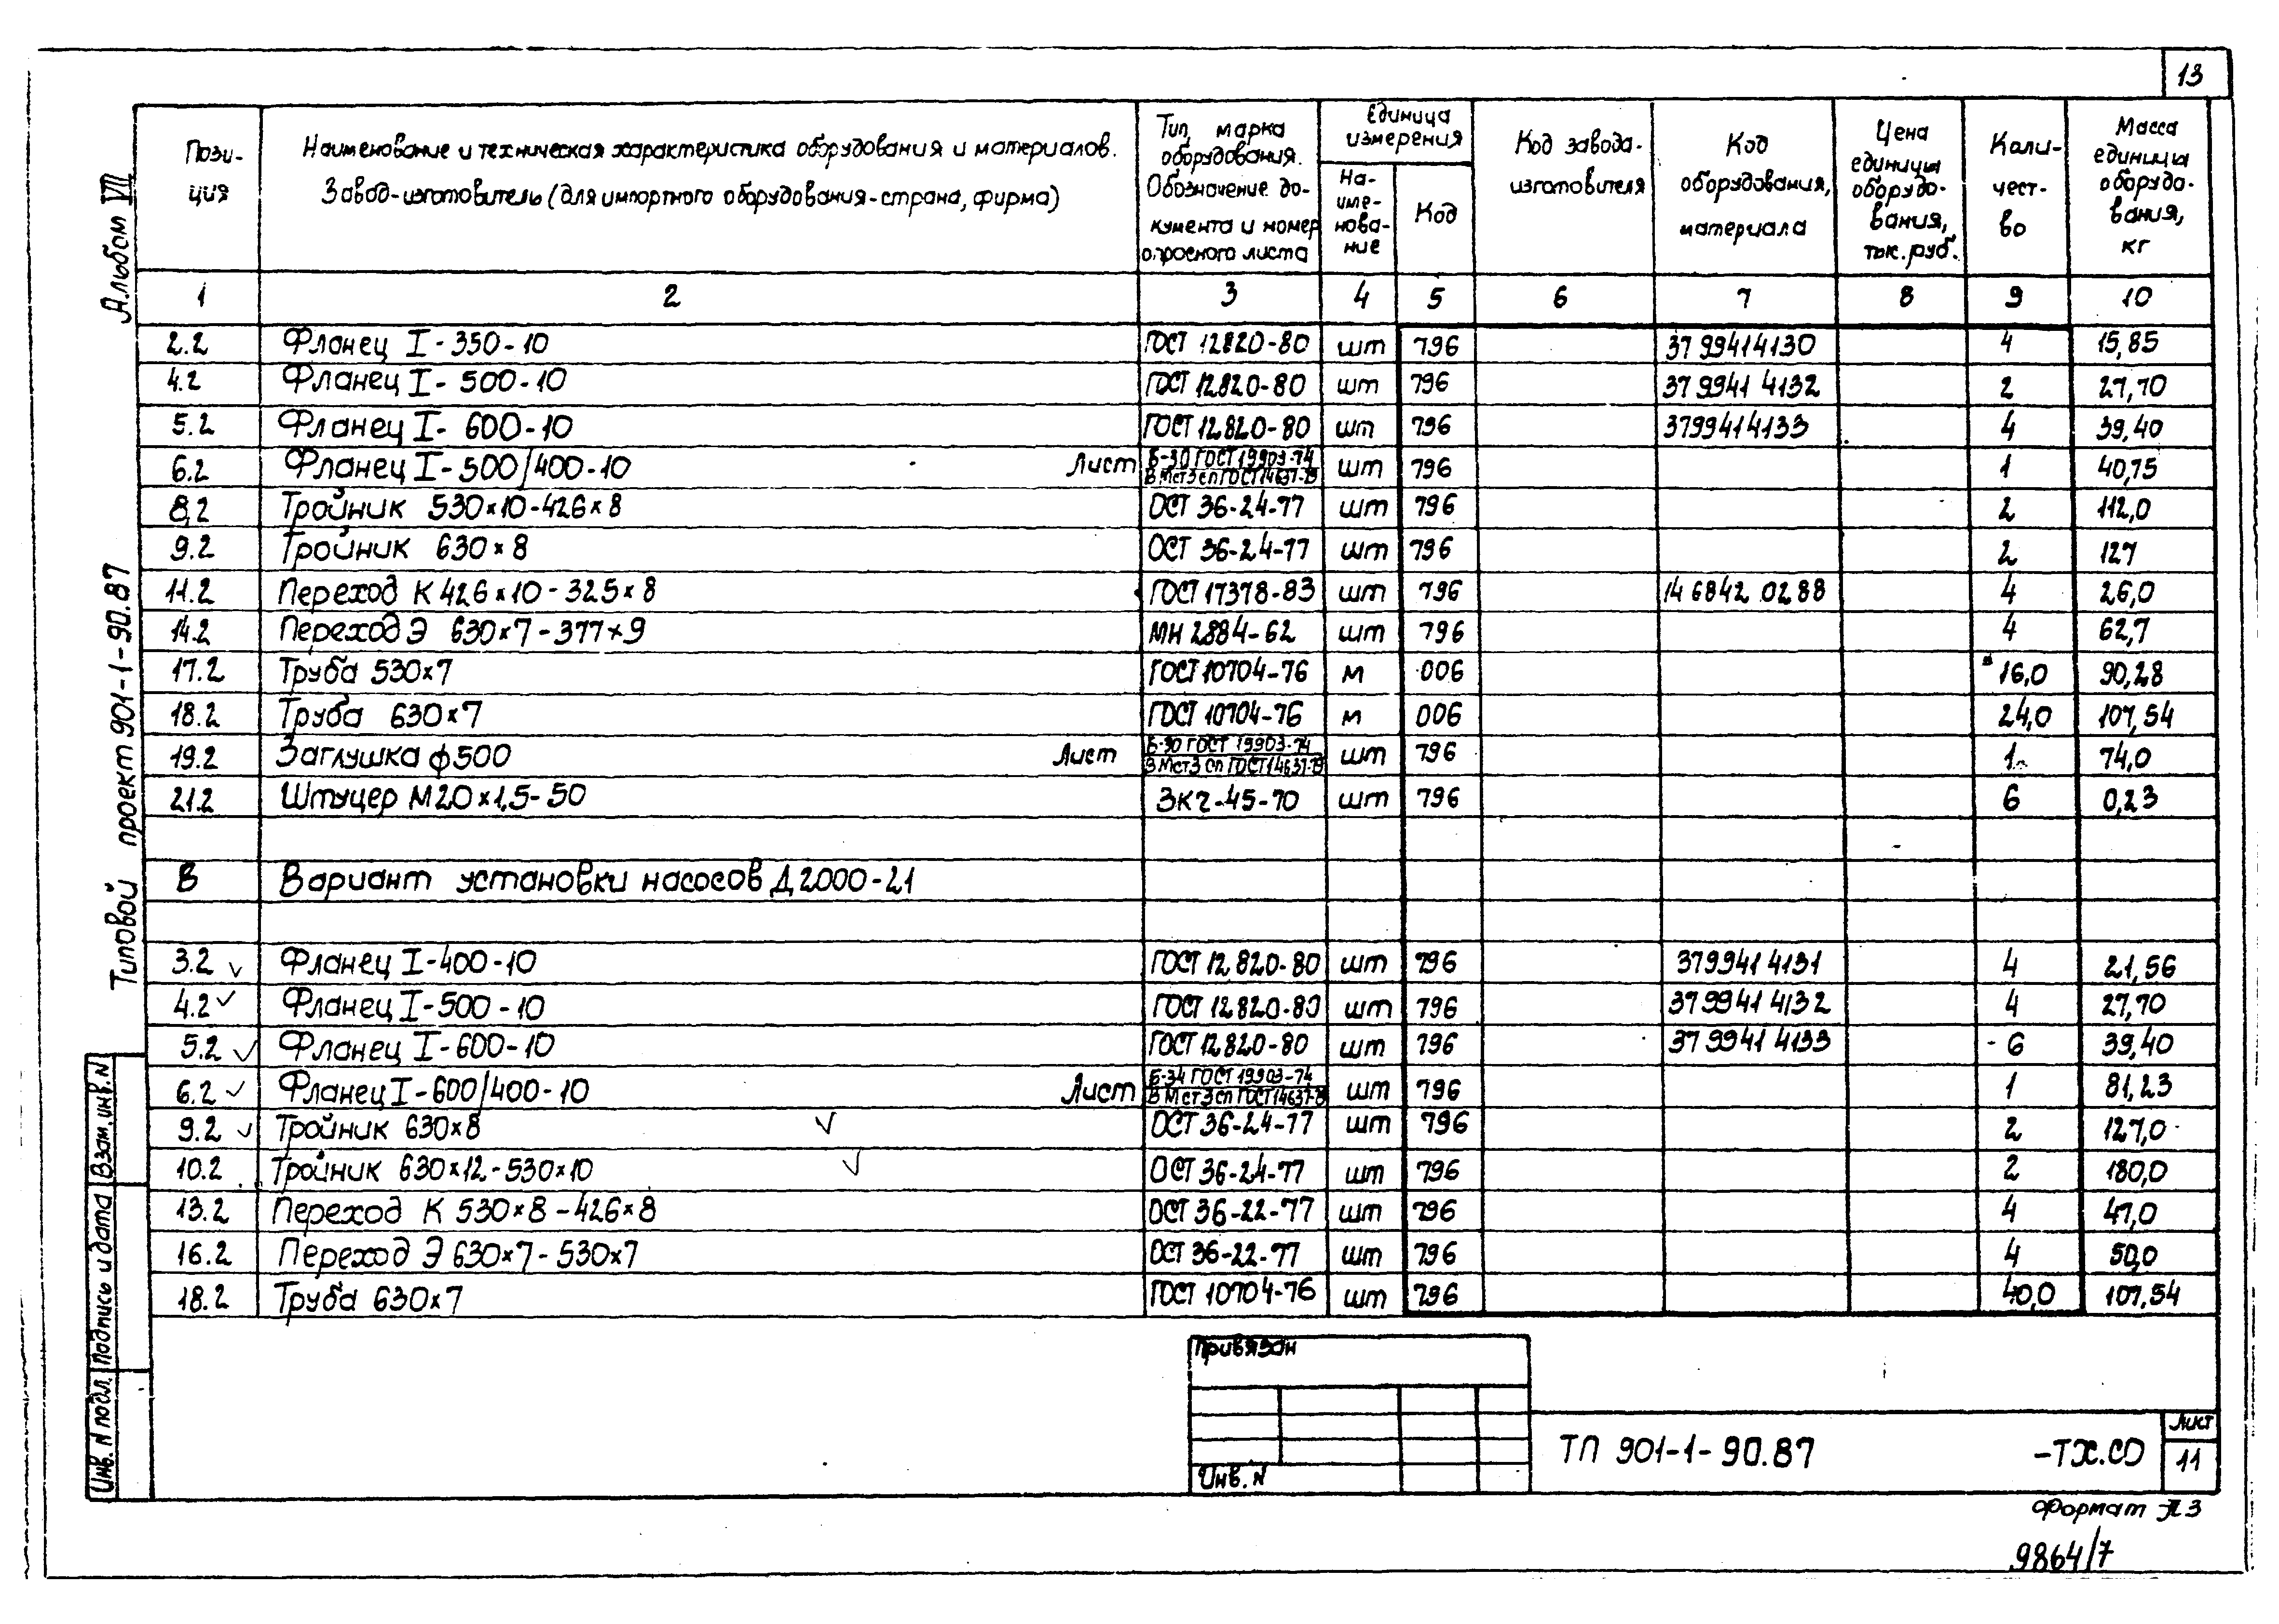 13
Альбом VII
Типовой проект 901-1-90.87
Пози-
ция
Наименование и техническая характеристика оборудования и материалов.
Завод-изготовитель (для импортного оборудования-страна, фирма)
Тип, марка
оборудования.
Обозначение до-
кумента и номер
опросного листа
Единица
измерения
На-
име-
нова-
ние
Код
Код завода-
изготовителя
Код
оборудования,
материала
Цена
единицы
оборудо-
вания,
тыс. руб.
Коли-
чест-
во
Масса
единицы
оборудо-
вания,
кг
1 2 3 4 5 6 7 8 9 10
2.2 Фланец I-350-10 ГОСТ 12820-80 шт 796 37 99414130 4 15,85
4.2 Фланец I-500-10 ГОСТ 12820-80 шт 796 37 9941 4132 2 27,70
5.2 Фланец I-600-10 ГОСТ 12820-80 шт 796 3799414133 4 39,40
6.2 Фланец I-500/400-10 Лист Б-30 ГОСТ 19903-74 / ВМст3сп ГОСТ 14637-79 шт 796 1 40,75
8.2 Тройник 530×10-426×8 ОСТ 36-24-77 шт 796 2 112,0
9.2 Тройник 630×8 ОСТ 36-24-77 шт 796 2 127
11.2 Переход К 426×10-325×8 ГОСТ 17378-83 шт 796 14 6842 0288 4 26,0
14.2 Переход Э 630×7-377×9 МН 2884-62 шт 796 4 62,7
17.2 Труба 530×7 ГОСТ 10704-76 м 006 16,0 90,28
18.2 Труба 630×7 ГОСТ 10704-76 м 006 24,0 107,54
19.2 Заглушка ф500 Лист Б-30 ГОСТ 19903-74 / ВМст3сп ГОСТ 14637-79 шт 796 1 74,0
21.2 Штуцер М20×1,5-50 ЗК4-45-70 шт 796 6 0,23
В Вариант установки насосов Д2000-21
3.2 Фланец I-400-10 ГОСТ 12820-80 шт 796 379941 4131 4 21,56
4.2 Фланец I-500-10 ГОСТ 12820-80 шт 796 379941 4132 4 27,70
5.2 Фланец I-600-10 ГОСТ 12820-80 шт 796 37 9941 4133 6 39,40
6.2 Фланец I-600/400-10 Лист Б-34 ГОСТ 19903-74 / ВМст3сп ГОСТ 14637-79 шт 796 1 81,23
9.2 Тройник 630×8 ОСТ 36-24-77 шт 796 2 127,0
10.2 Тройник 630×12-530×10 ОСТ 36-24-77 шт 796 2 180,0
13.2 Переход К 530×8-426×8 ОСТ 36-22-77 шт 796 4 47,0
16.2 Переход Э 630×7-530×7 ОСТ 36-22-77 шт 796 4 50,0
18.2 Труба 630×7 ГОСТ 10704-76 шт 796 40,0 107,54
Инв. N подл. Подпись и дата Взам. инв. N
Привязан
Инв. N
ТП 901-1-90.87 -ТХ.СО
Лист
11
Формат А3
9864/7